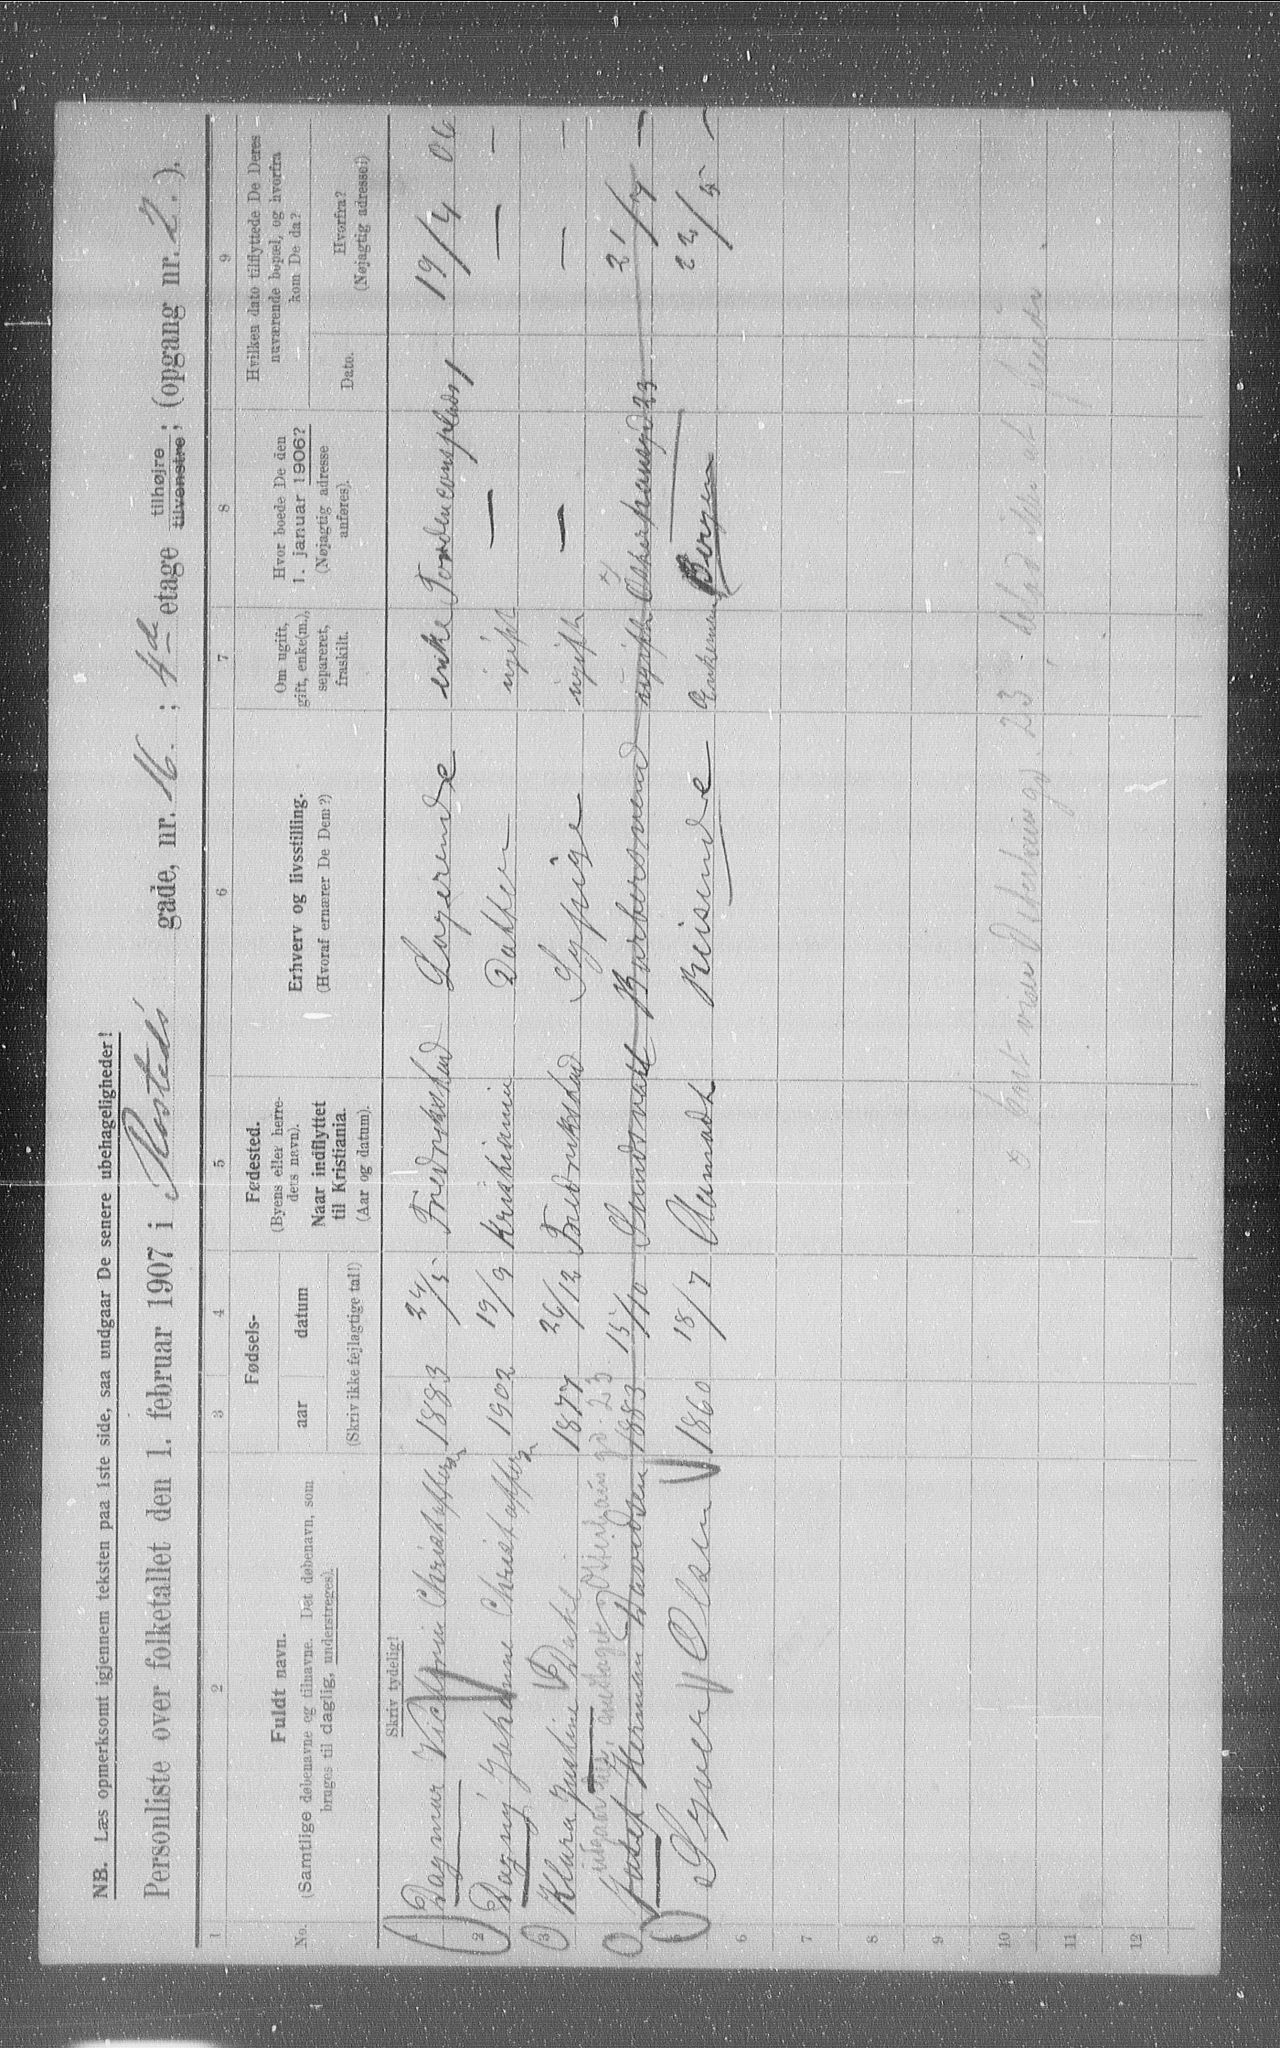 NB. Læs opmerksomt igjennem teksten paa 1ste side, saa undgaar De senere ubehageligheder!
Personliste over folketallet den 1. februar 1907 i Rosteds gade, nr. 16. ; 4de etage tilhøjre tilvenstre ; (opgang nr. 2. ).
1 2 3 4 5 6 7 8 9
No.
Fuldt navn.
(Samtlige døbenavne og tilnavne. Det døbenavn, som
bruges til daglig, understreges).
Fødsels-
aar datum
(Skriv ikke fejlagtige tal!)
Fødested.
(Byens eller herre-
dets navn).
Naar indflyttet
til Kristiania.
(Aar og datum).
Erhverv og livsstilling.
(Hvoraf ernærer De Dem?)
Om ugift,
gift, enke(m.),
separeret,
fraskilt.
Hvor boede De den
1. januar 1906?
(Nøjagtig adresse
anføres).
Hvilken dato tilflyttede De Deres
nuværende bopæl, og hvorfra
kom De da?
Dato.
Hvorfra?
(Nøjagtig adresse!)
Skriv tydelig!
1 Dagmar Christoffersen 1883 24/5 Fredrikstad Logerende enke Tordenskiolds plads 1 19/4 06
2 Dagny Johanne Christoffersen 1902 19/9 Kristiania Datter ugift — — —
3 Klara Justine Dahl 1877 26/12 Fredrikstad Sypige ugift — — —
Osterhausgd. 23
4 Josef Herman Davidsen 1883 15/10 Sundsvall Barbersvend ugift 23 21/7 —
5 Syver Olsen 1860 18/7 Reisende Enkemand Bergen 22/5 —
6
7
8
9
10 23
11
12